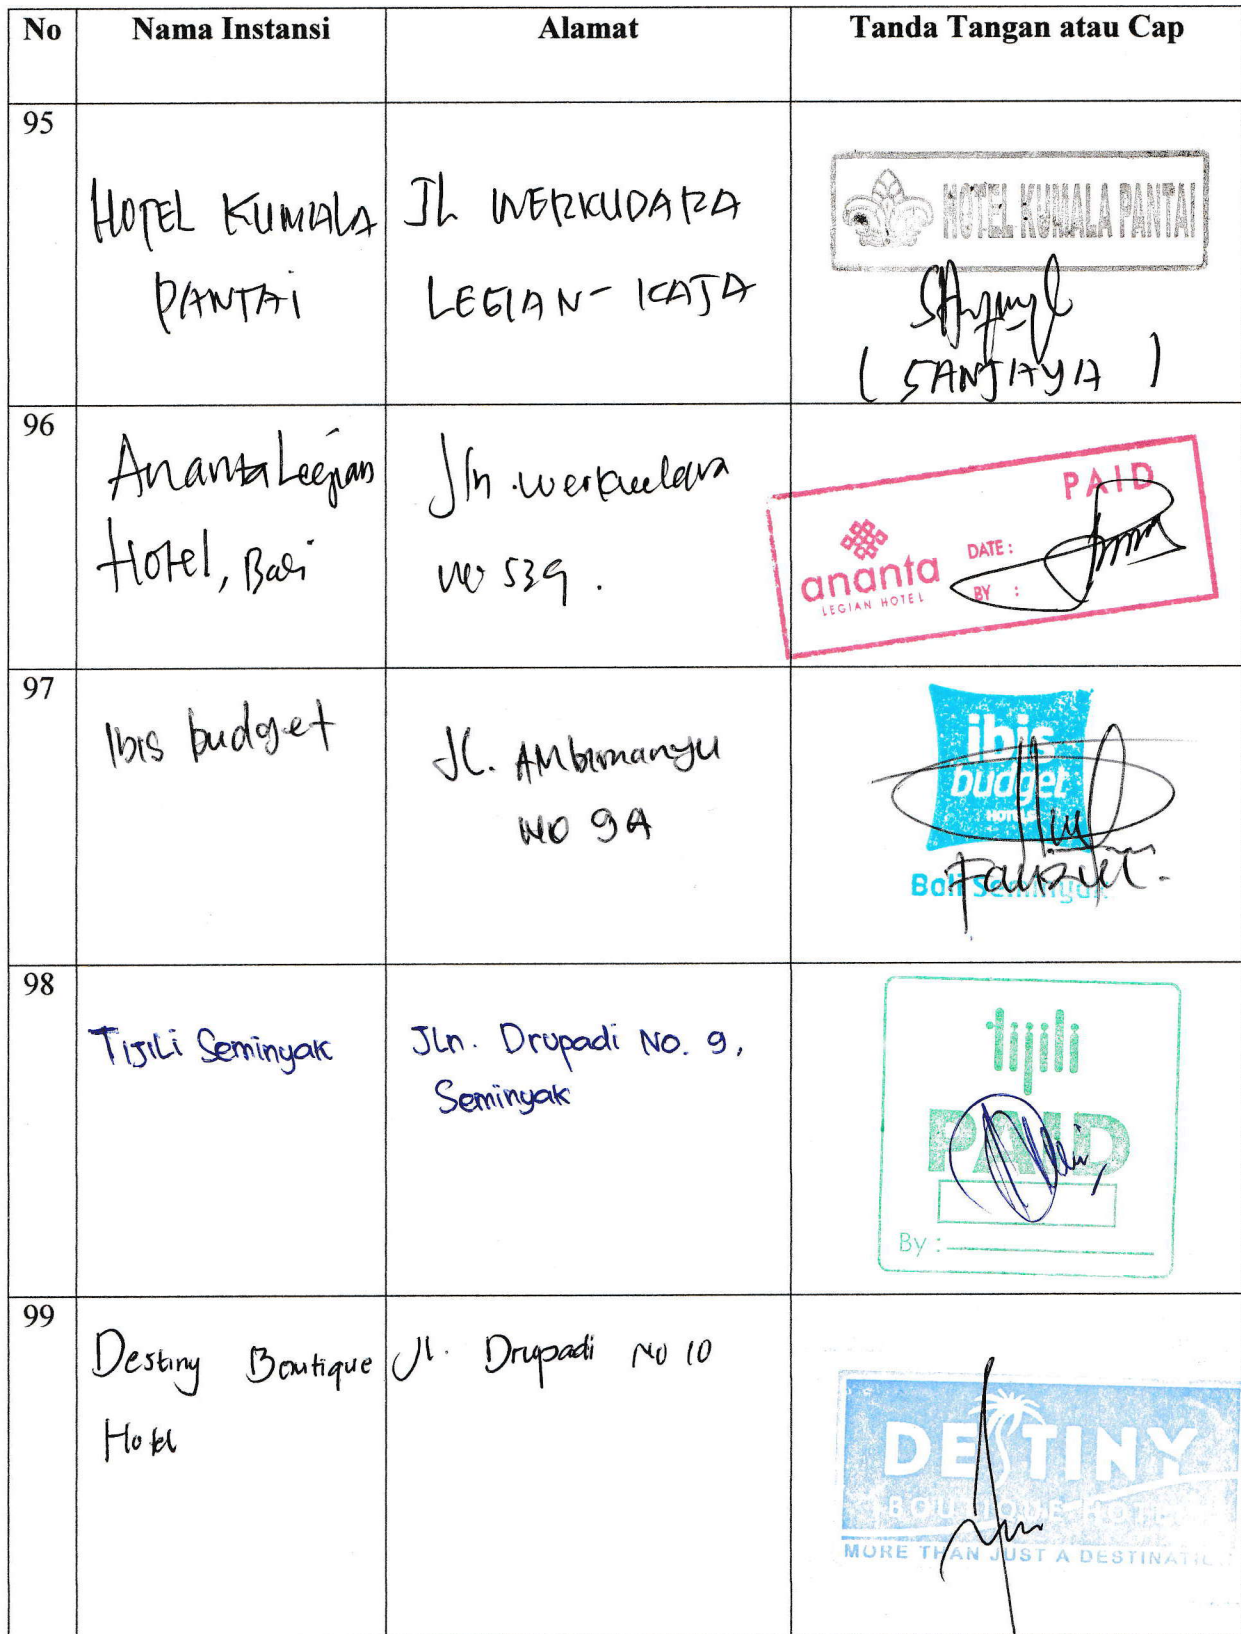 No Nama Instansi Alamat Tanda Tangan atau Cap
95
HOTEL KUMALA
PANTAI
JL WERKUDARA
LEGIAN - KAJA
HOTEL KUMALA PANTAI
( SANJAYA )
96
Ananta Legian
Hotel, Bali
Jln. werkudara
no 539.
PAID
ananta
LEGIAN HOTEL
DATE :
BY :
97
Ibis budget
JL. AMbimanyu
NO 9A
ibis
budget
HOTELS
Bali Seminyak
98
TijiLi Seminyak
JLn. Drupadi No. 9,
Seminyak
tijili
PAID
By :
99
Destiny Boutique
Hotel
Jl. Drupadi No 10
DESTINY
BOUTIQUE HOTEL
MORE THAN JUST A